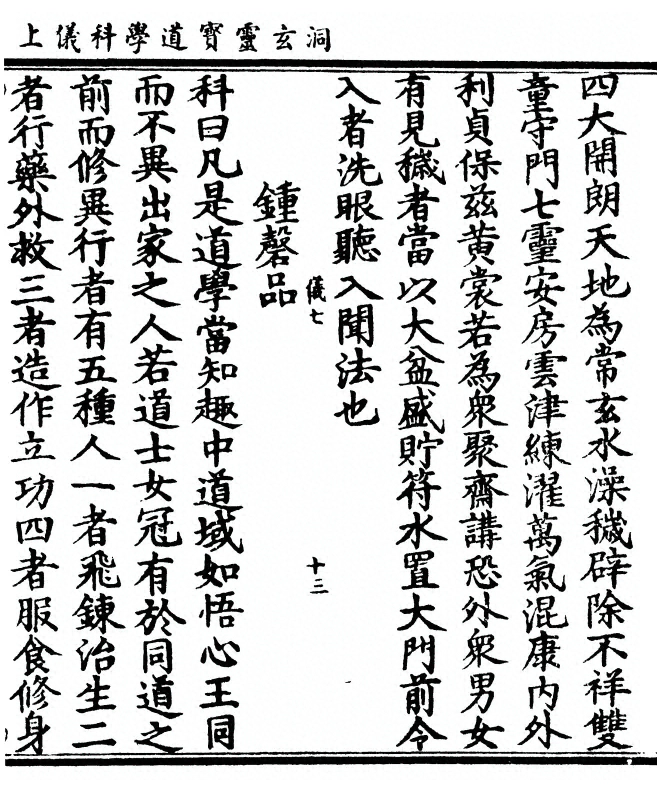 洞玄靈寶道學科儀上
四大開朗天地為常玄水澡穢辟除不祥雙
童守門七靈安房雲津練濯萬氣混康内外
利貞保兹黄裳若為衆聚齋講恐外衆男女
有見穢者當以大盆盛貯符水置大門前令
入者洗眼聽入聞法也
儀七
十三
鍾磬品
科曰凡是道學當知趣中道域如悟心王同
而不異出家之人若道士女冠有於同道之
前而修異行者有五種人一者飛鍊治生二
者行藥外救三者造作立功四者服食修身